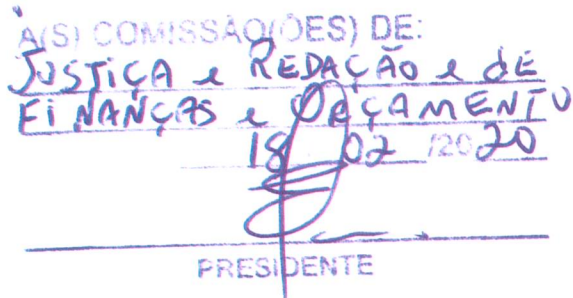 À(S) COMISSÃO(ÕES) DE:
JUSTIÇA e REDAÇÃO e dE
FINANÇAS e ORÇAMENTO
18 02 /2020
PRESIDENTE